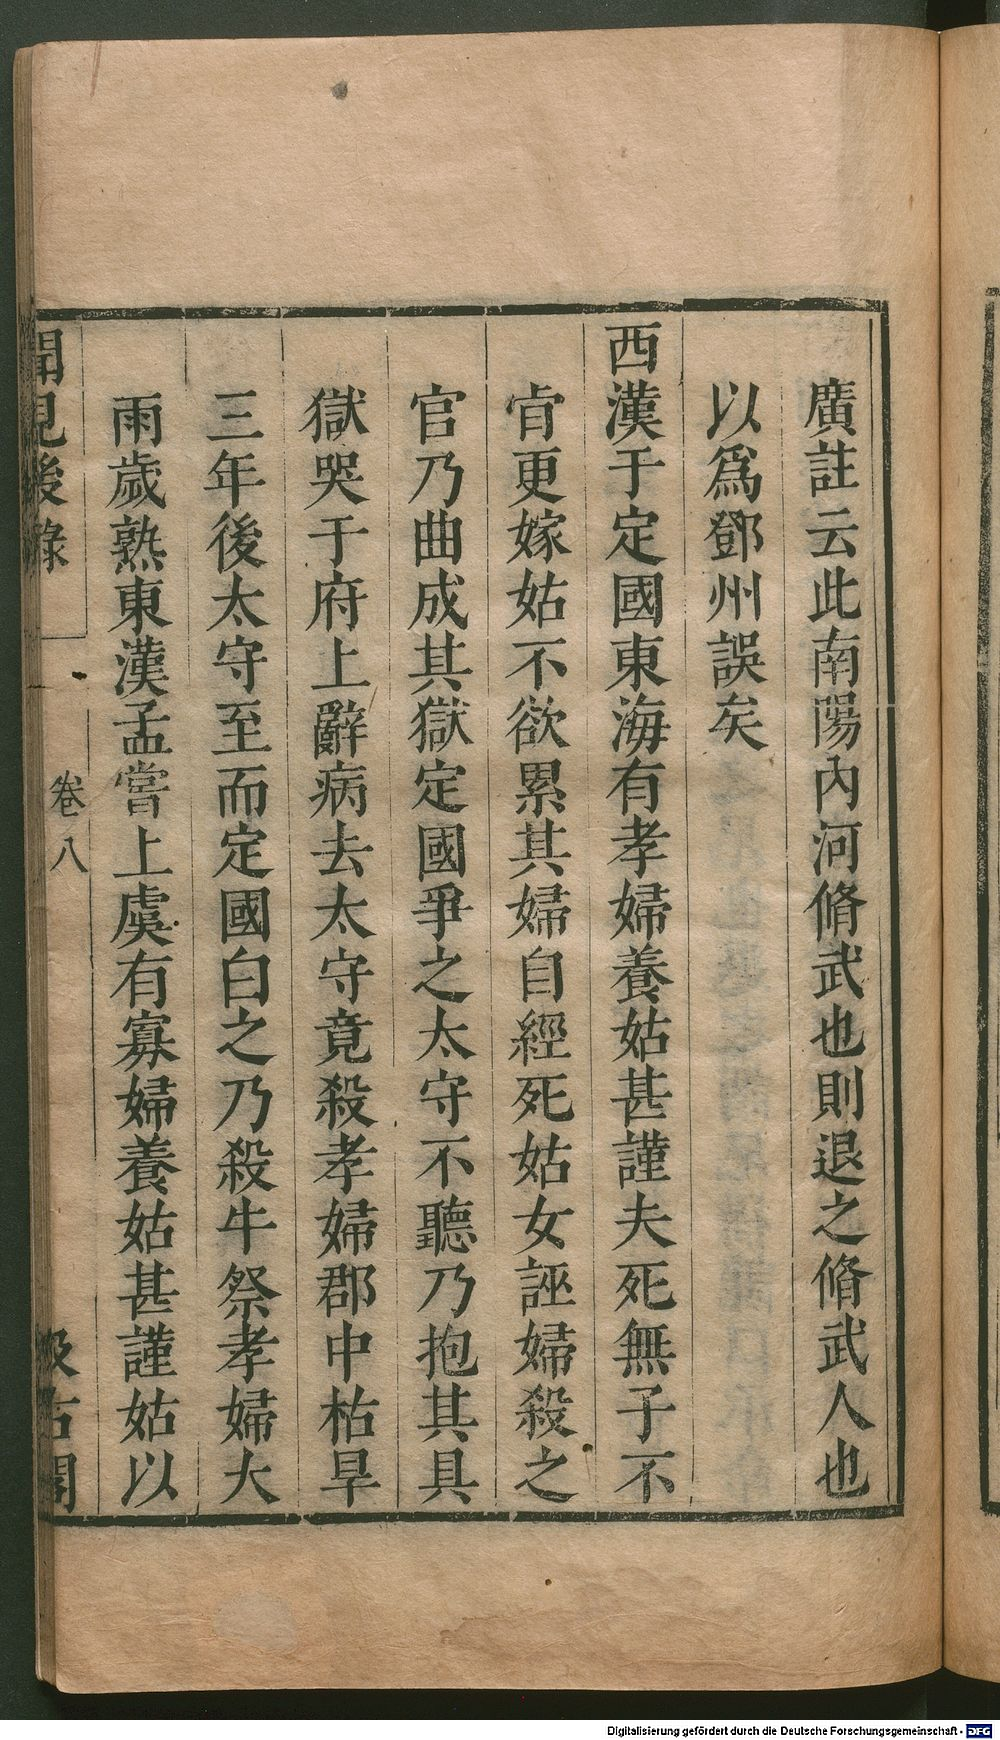 廣註云此南陽內河脩武也則退之脩武人也
以爲鄧州誤矣
西漢于定國東海有孝婦養姑甚謹夫死無子不
肯更嫁姑不欲累其婦自經死姑女誣婦殺之
官乃曲成其獄定國爭之太守不聽乃抱其具
獄哭于府上辭病去太守竟殺孝婦郡中枯旱
三年後太守至而定國白之乃殺牛祭孝婦大
雨歲熟東漢孟嘗上虞有寡婦養姑甚謹姑以
聞見後錄
卷八
汲古閣
Digitalisierung gefördert durch die Deutsche Forschungsgemeinschaft - DFG